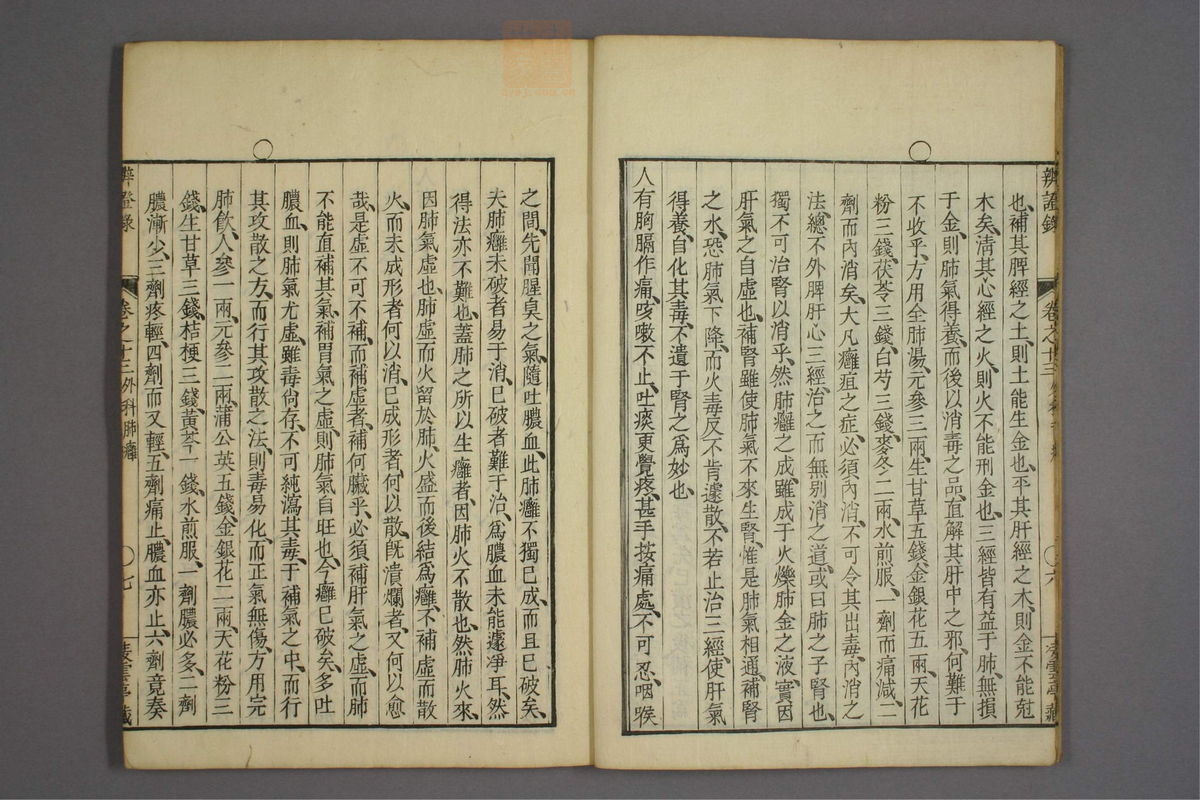 辨證錄 卷之十三 外科 六 凌雲亭藏
也、補其脾經之土、則土能生金也、平其肝經之木、則金不能尅
木矣、淸其心經之火、則火不能刑金也、三經皆有益于肺、無損
于金、則肺氣得養、而後以消毒之品、直解其肝中之邪、何難于
不收乎、方用全肺湯、元參三兩、生甘草五錢、金銀花五兩、天花
粉三錢、茯苓三錢、白芍三錢、麥冬二兩、水煎服、一劑而痛減、二
劑而內消矣、大凡癰疽之症、必須內消、不可令其出毒、內消之
法、總不外脾肝心三經、治之而無别消之道、或曰肺之子腎也、
獨不可治腎以消乎、然肺癰之成、雖成于火爍肺金之液、實因
肝氣之自虛也、補腎雖使肺氣不來生腎、惟是肺氣相通、補腎
之水、恐肺氣下降、而火毒反不肯遽散、不若止治三經、使肝氣
得養、自化其毒、不遺于腎之爲妙也、
人有胸膈作痛、咳嗽不止、吐痰更覺疼甚、手按痛處、不可忍、咽喉
之間、先聞腥臭之氣、隨吐膿血、此肺癰不獨已成、而且已破矣、
夫肺癰未破者易于消、已破者難于治、爲膿血未能遽凈耳、然
得法亦不難也、蓋肺之所以生癰者、因肺火不散也、然肺火來、
因肺氣虛也、肺虛而火留於肺、火盛而後結爲癰、不補虛而散
火、而未成形者何以消、已成形者、何以散、旣潰爛者、又何以愈
哉、是虛不可不補、而補虛者、補何臟乎、必須補肝氣之虛、而肺
不能直補其氣、補胃氣之虛、則肺氣自旺也、今癰已破矣、多吐
膿血、則肺氣尤虛、雖毒尙存、不可純瀉其毒、于補氣之中、而行
其攻散之方、而行其攻散之法、則毒易化、而正氣無傷、方用完
肺飮、人參一兩、元參二兩、蒲公英五錢、金銀花二兩、天花粉三
錢、生甘草三錢、桔梗三錢、黃芩一錢、水煎服、一劑膿必多、二劑
膿漸少、三劑疼輕、四劑而又輕、五劑痛止、膿血亦止、六劑竟奏
辨證錄 卷之十三 外科 肺癰 七 凌雲亭藏